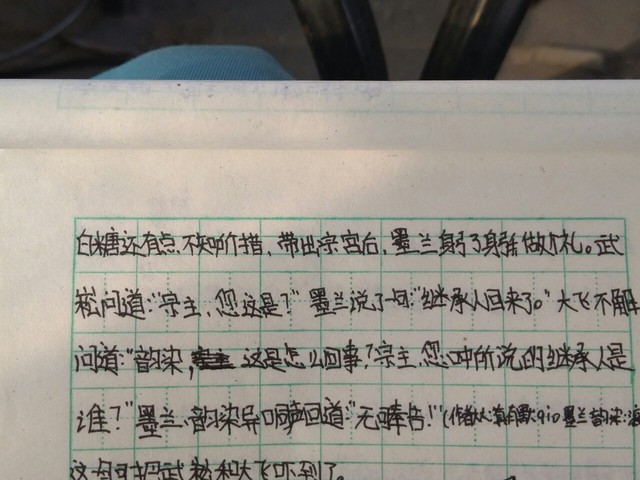 白糖还有点不知所措，带出宗宫后，墨兰躬了躬身做个礼。武
崧问道："宗主，您这是？"墨兰说了一句："继承人回来了。"大飞不解
问道："韵染，这是怎么回事？宗主，您口中所说的继承人是
谁？"墨兰、韵染异口同声回道："无可奉告！"(作者
这句可把武崧和大飞吓到了。